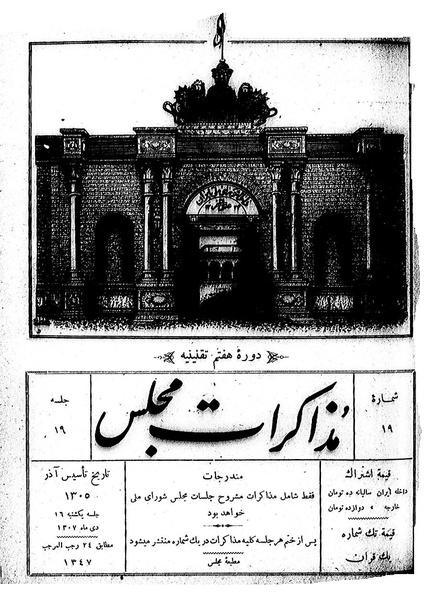 دورهٔ هفتم تقنینیه
شمارهٔ
۱۹
مذاکرات مجلس
جلسه
۱۹
قیمة اشتراك
داخله ایران سالیانه ده تومان
خارجه » دوازده تومان
قیمة تك شماره
یك قران
مندرجات
فقط شامل مذاکرات مشروح جلسات مجلس شورای ملی
خواهد بود
پس از ختم هر جلسه کلیه مذاکرات در یك شماره منتشر میشود
مطبعهٔ مجلس
تاریخ تأسیس آذر
۱۳۰۵
جلسه یکشنبه ۱۶
دی ماه ۱۳۰۷
مطابق ۲۴ رجب المرجب
۱۳۴۷